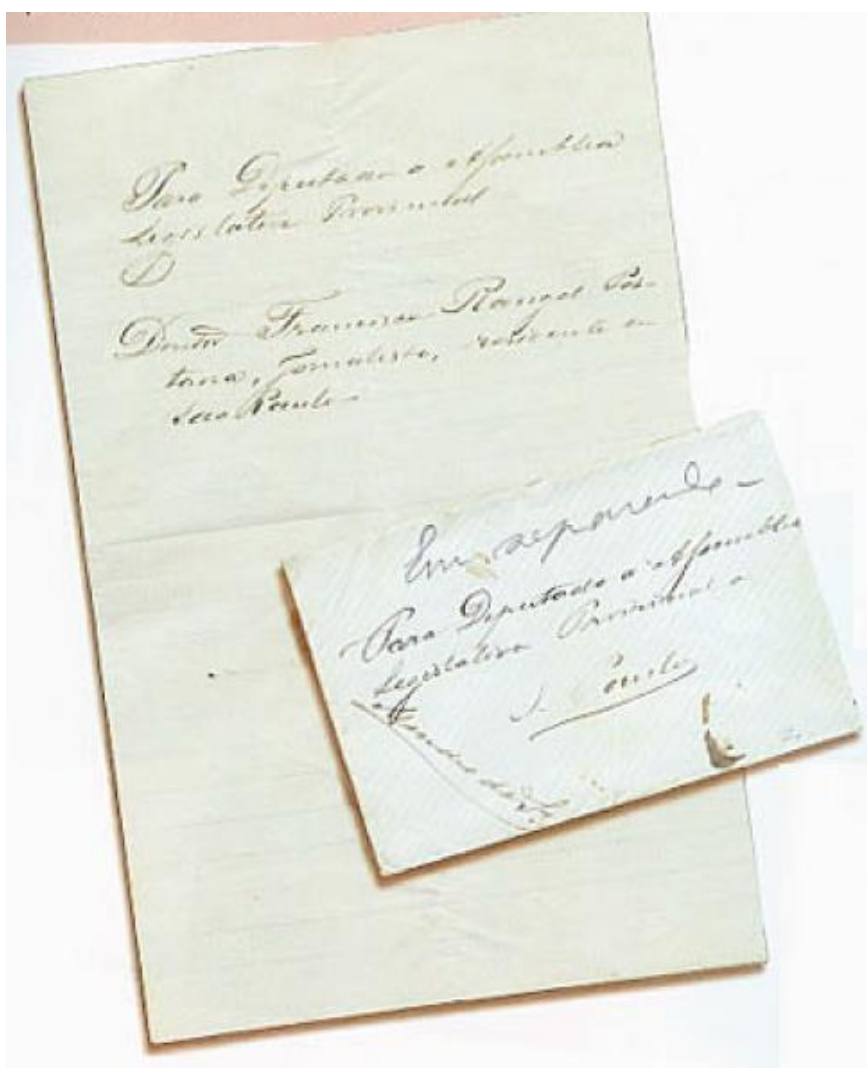 Para Deputado a Assemblea
Legislativa Provincial
O
Doutor Francisco Rangel Pes-
tana, Jornalista, residente em
São Paulo
Em separado -
Para Deputado a Assemblea
Legislativa Provincial
S. Paulo